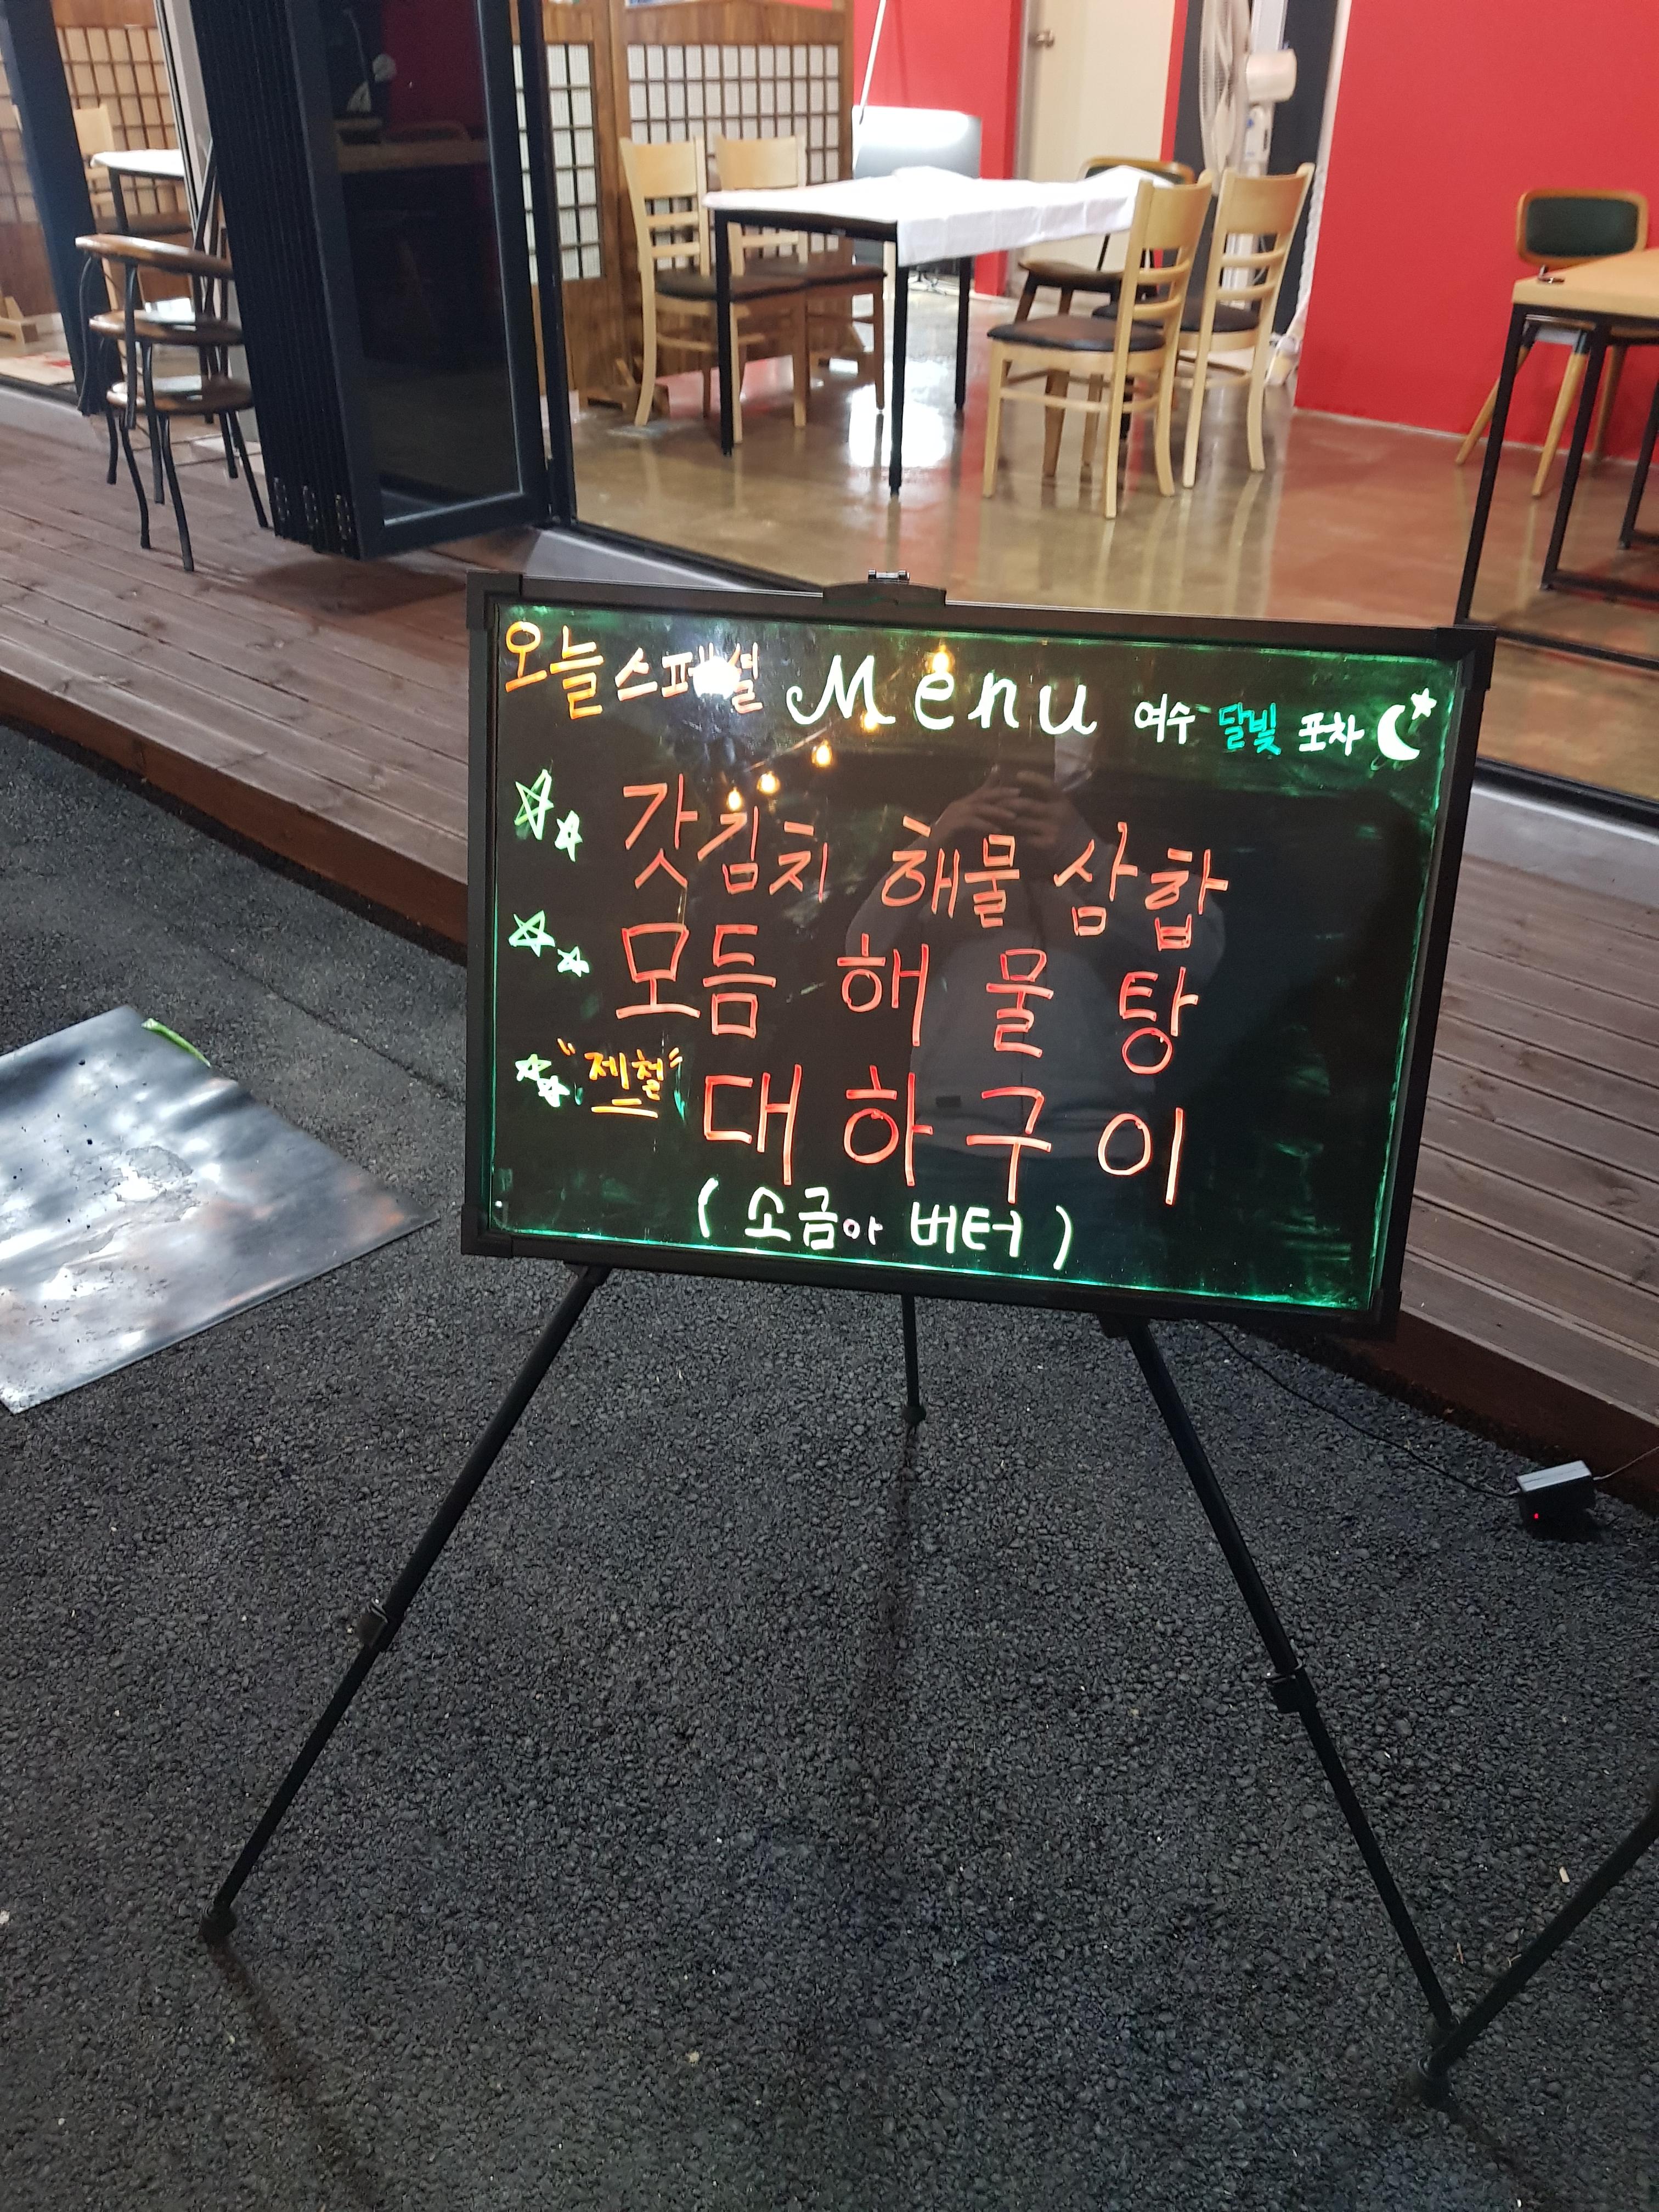 오늘 스페셜 Menu 여수 달빛 포차
갓김치 해물 삼합
모듬 해물탕
"제철" 대하구이
(소금아 버터)